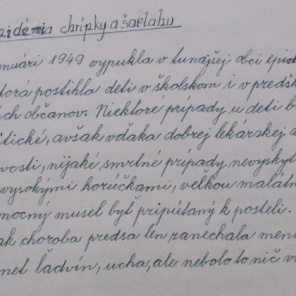 pidémia chrípky a šarlahu
januári 1949 vypukla v tunajšej obci epid
torá postihla deti v školskom i v predšk
ých občanov. Niektoré prípady u detí b
itické, avšak vďaka dobrej lekárskej a
vosti, nijaké smrtné prípady nevyskyt
vysokými horúčkami, veľkou malátn
mocný musel byť pripútaný k posteli.
ak choroba predsa len zanechala men
nel ľadvín, ucha, ale nebolo to nič v